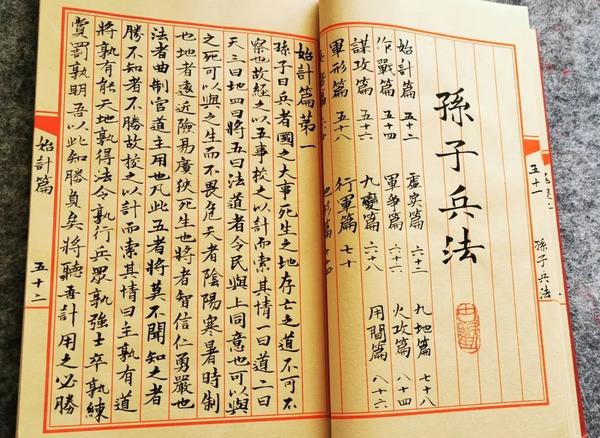 孫子兵法
五十一
孫子兵法
始計篇 五十二 虛實篇 六十二 九地篇 七十八
作戰篇 五十四 軍爭篇 六十六 火攻篇 八十四
謀攻篇 五十六 九變篇 六十八 用間篇 八十六
軍形篇 五十八 行軍篇 七十
始計篇第一
孫子曰兵者國之大事死生之地存亡之道不可不
察也故經之以五事校之以計而索其情一曰道二曰
天三曰地四曰將五曰法道者令民與上同意也可以與
之死可以與之生而不畏危天者陰陽寒暑時制
也地者遠近險易廣狹死生也將者智信仁勇嚴也
法者曲制官道主用也凡此五者將莫不聞知之者
勝不知者不勝故校之以計而索其情曰主孰有道
將孰有能天地孰得法令孰行兵眾孰強士卒孰練
賞罰孰明吾以此知勝負矣將聽吾計用之必勝
始計篇 五十二